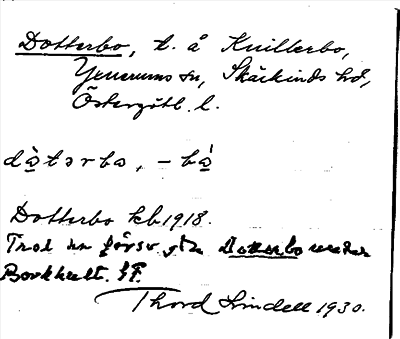 Dotterbo, t. å Knillerbo,
Yxnerums sn, Skärkinds hd,
Östergötl. l.
dàtərbo, -bó
Dotterbo kb 1918.
Dotterbo under
Borkhult. JF.
Thord Lindell 1930.